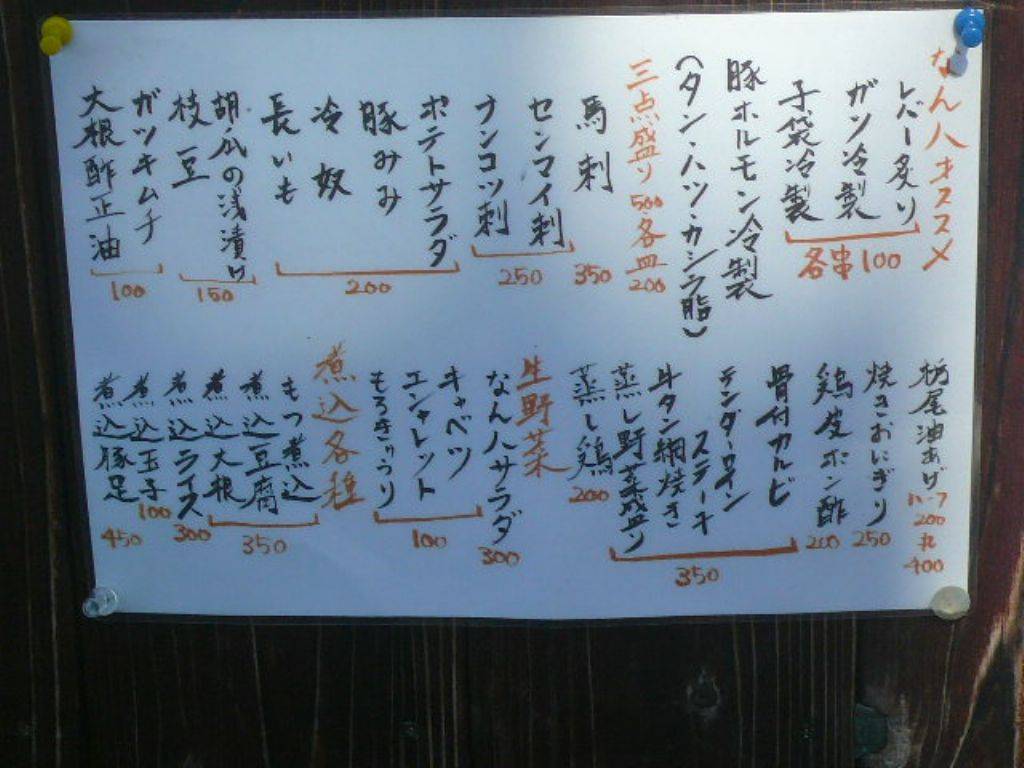 なん八オススメ
レバー炙り
ガツ冷製
子袋冷製
各串100
豚ホルモン冷製
(タン・ハツ・カシラ脂)
三点盛り500 各皿200
馬刺
350
センマイ刺
ナンコツ刺
250
ポテトサラダ
豚みみ
冷奴
長いも
200
胡瓜の浅漬け
枝豆
150
ガツキムチ
大根酢正油
100
栃尾油あげ ハーフ200 丸400
焼きおにぎり
250
鶏皮ポン酢
200
骨付カルビ
テンダーロイン
ステーキ
牛タン網焼き
蒸し野菜盛り
350
蒸し鶏
200
生野菜
なん八サラダ
300
キャベツ
エシャレット
もろきゅうり
100
煮込各種
もつ煮込
煮込豆腐
煮込大根
350
煮込ライス
300
煮込玉子
100
煮込豚足
450